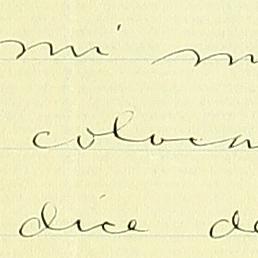 mi m
coloca
dice de